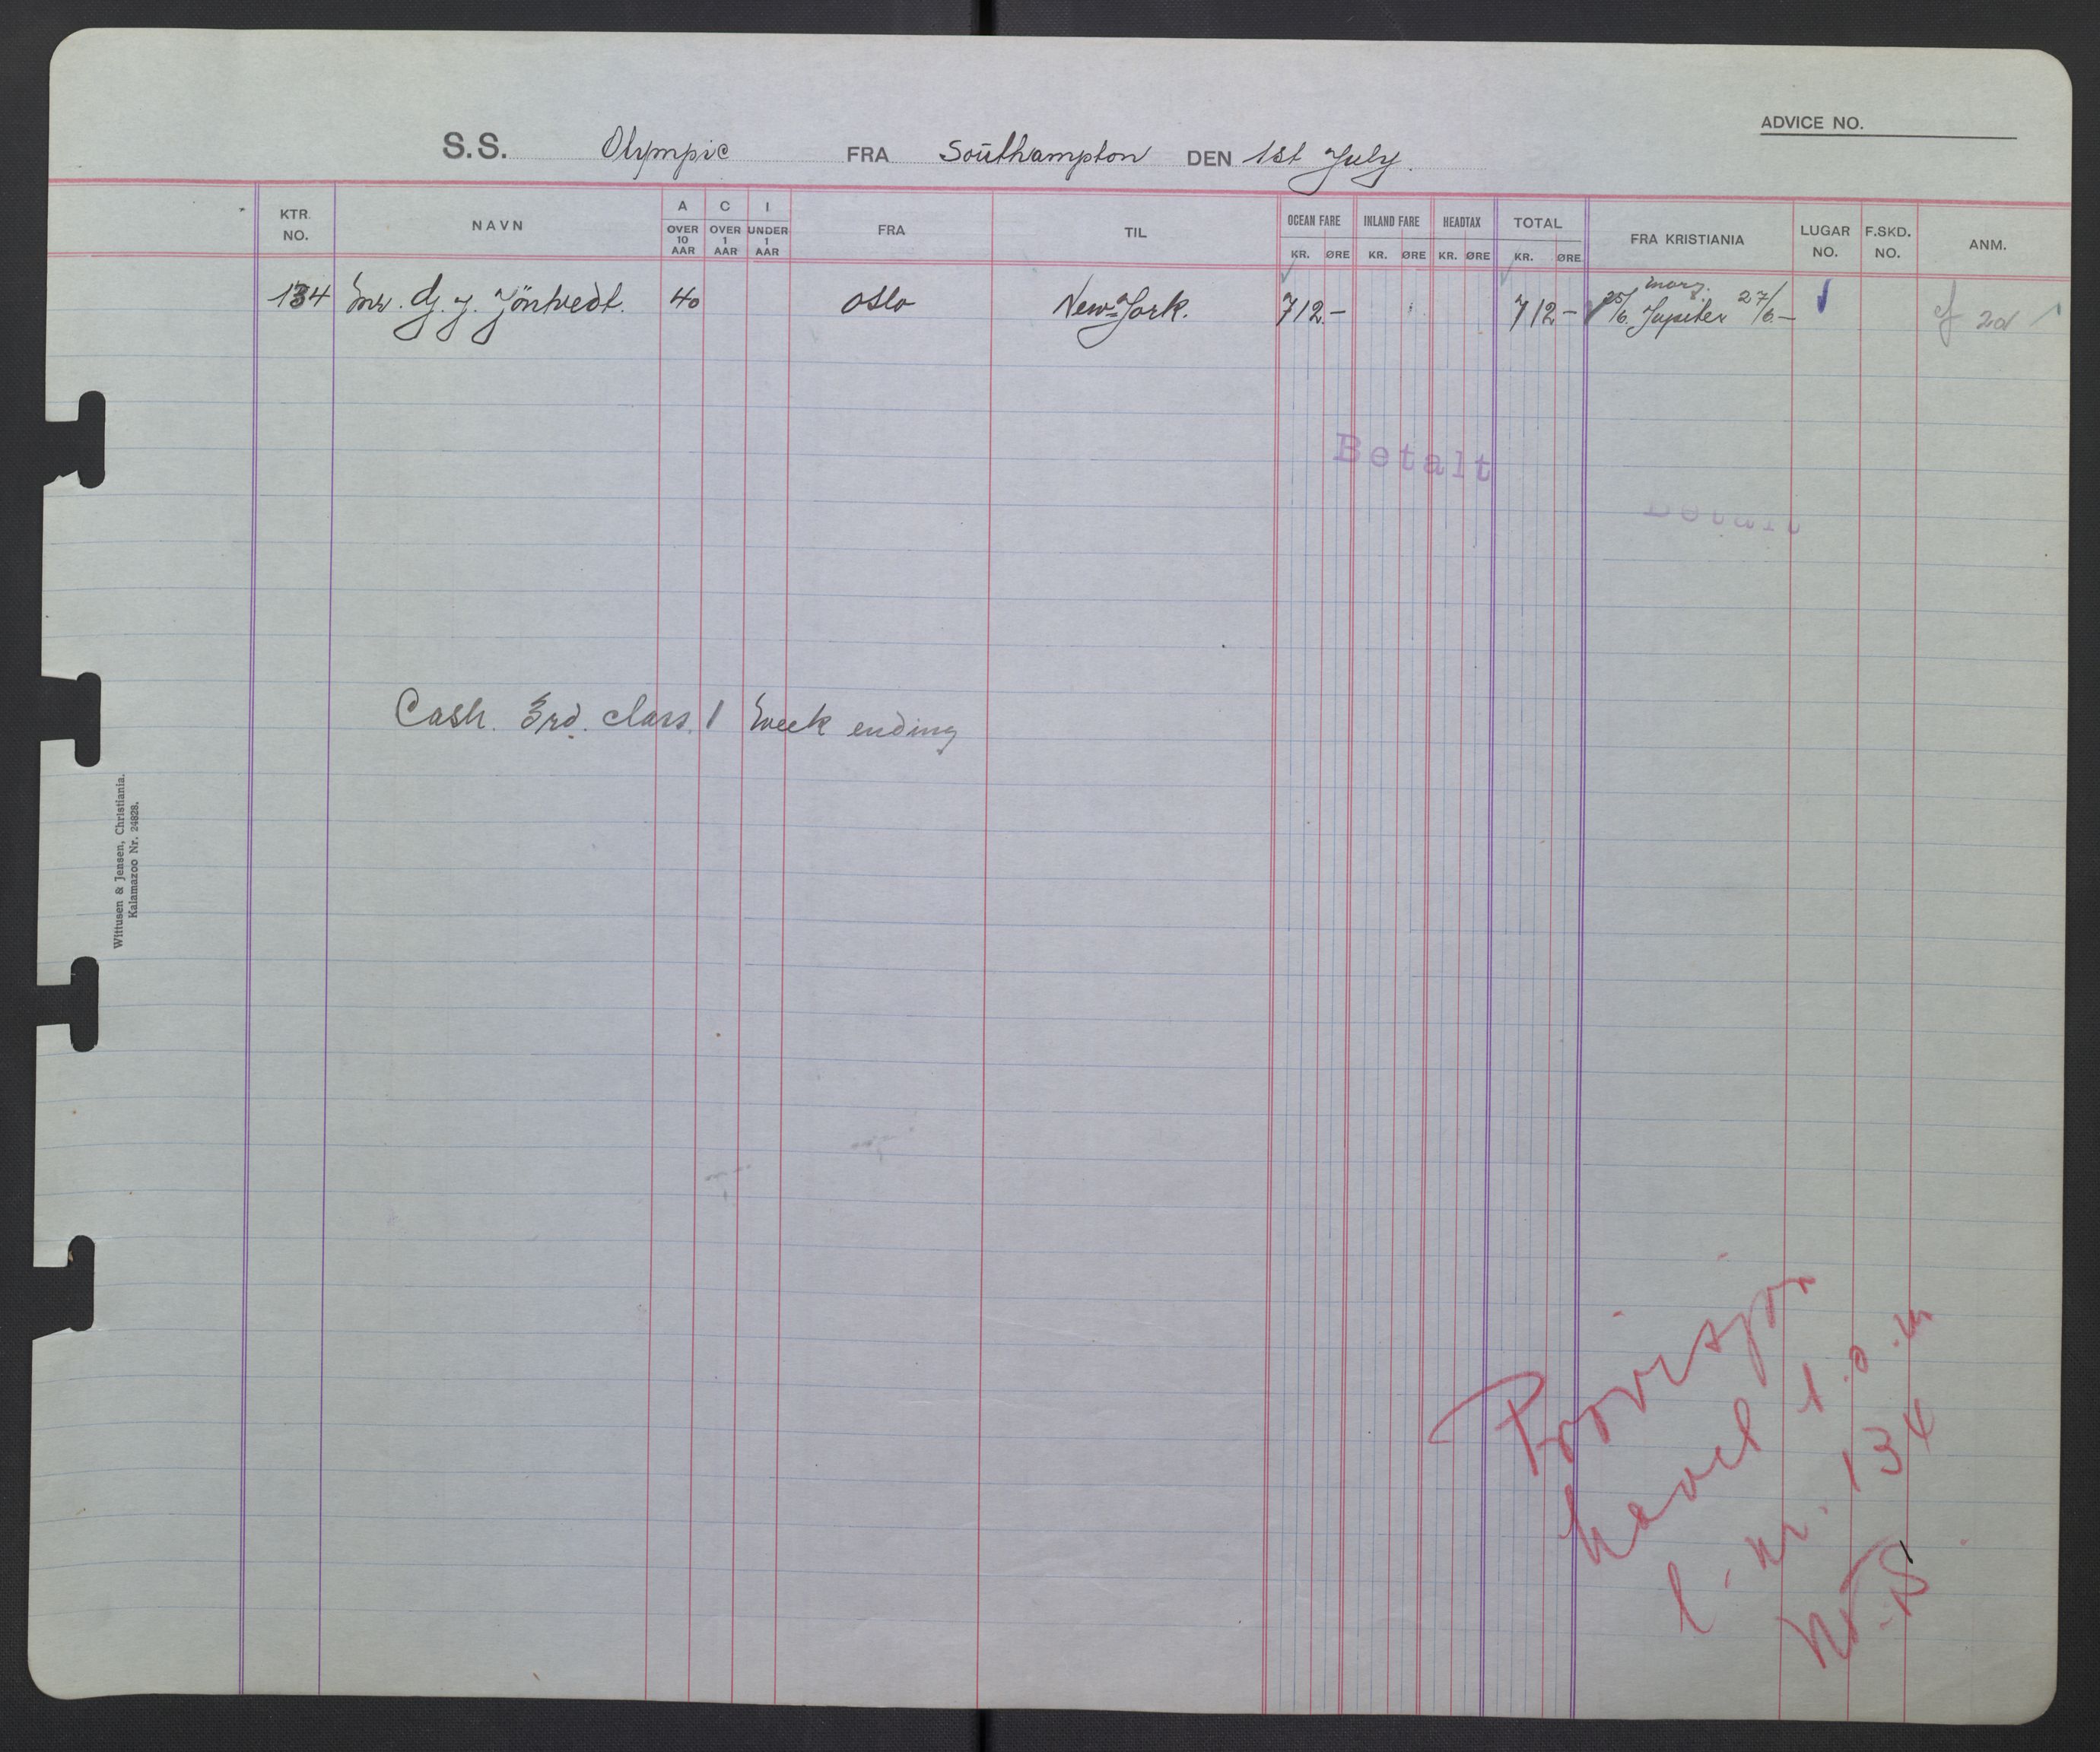 ADVICE NO.
S.S. Olympic FRA Southampton DEN 1st July.
KTR. NO. NAVN A OVER 10 AAR C OVER 1 AAR I UNDER 1 AAR FRA TIL OCEAN FARE KR. ØRE INLAND FARE KR. ØRE HEADTAX KR. ØRE TOTAL KR. ØRE FRA KRISTIANIA LUGAR NO. F.SKD. NO. ANM.
134 Mr. G. J. Jöntvedt. 40 Oslo New-York. 712.- 712- 25/6. Jupiter 27/6.-
Betalt
Betalt
Cash. 3rd. class. 1 week ending
Wittusen & Jensen, Christiania.
Kalamazoo Nr. 24828.
Provisjon
hævel t.o.m
l. nr. 134